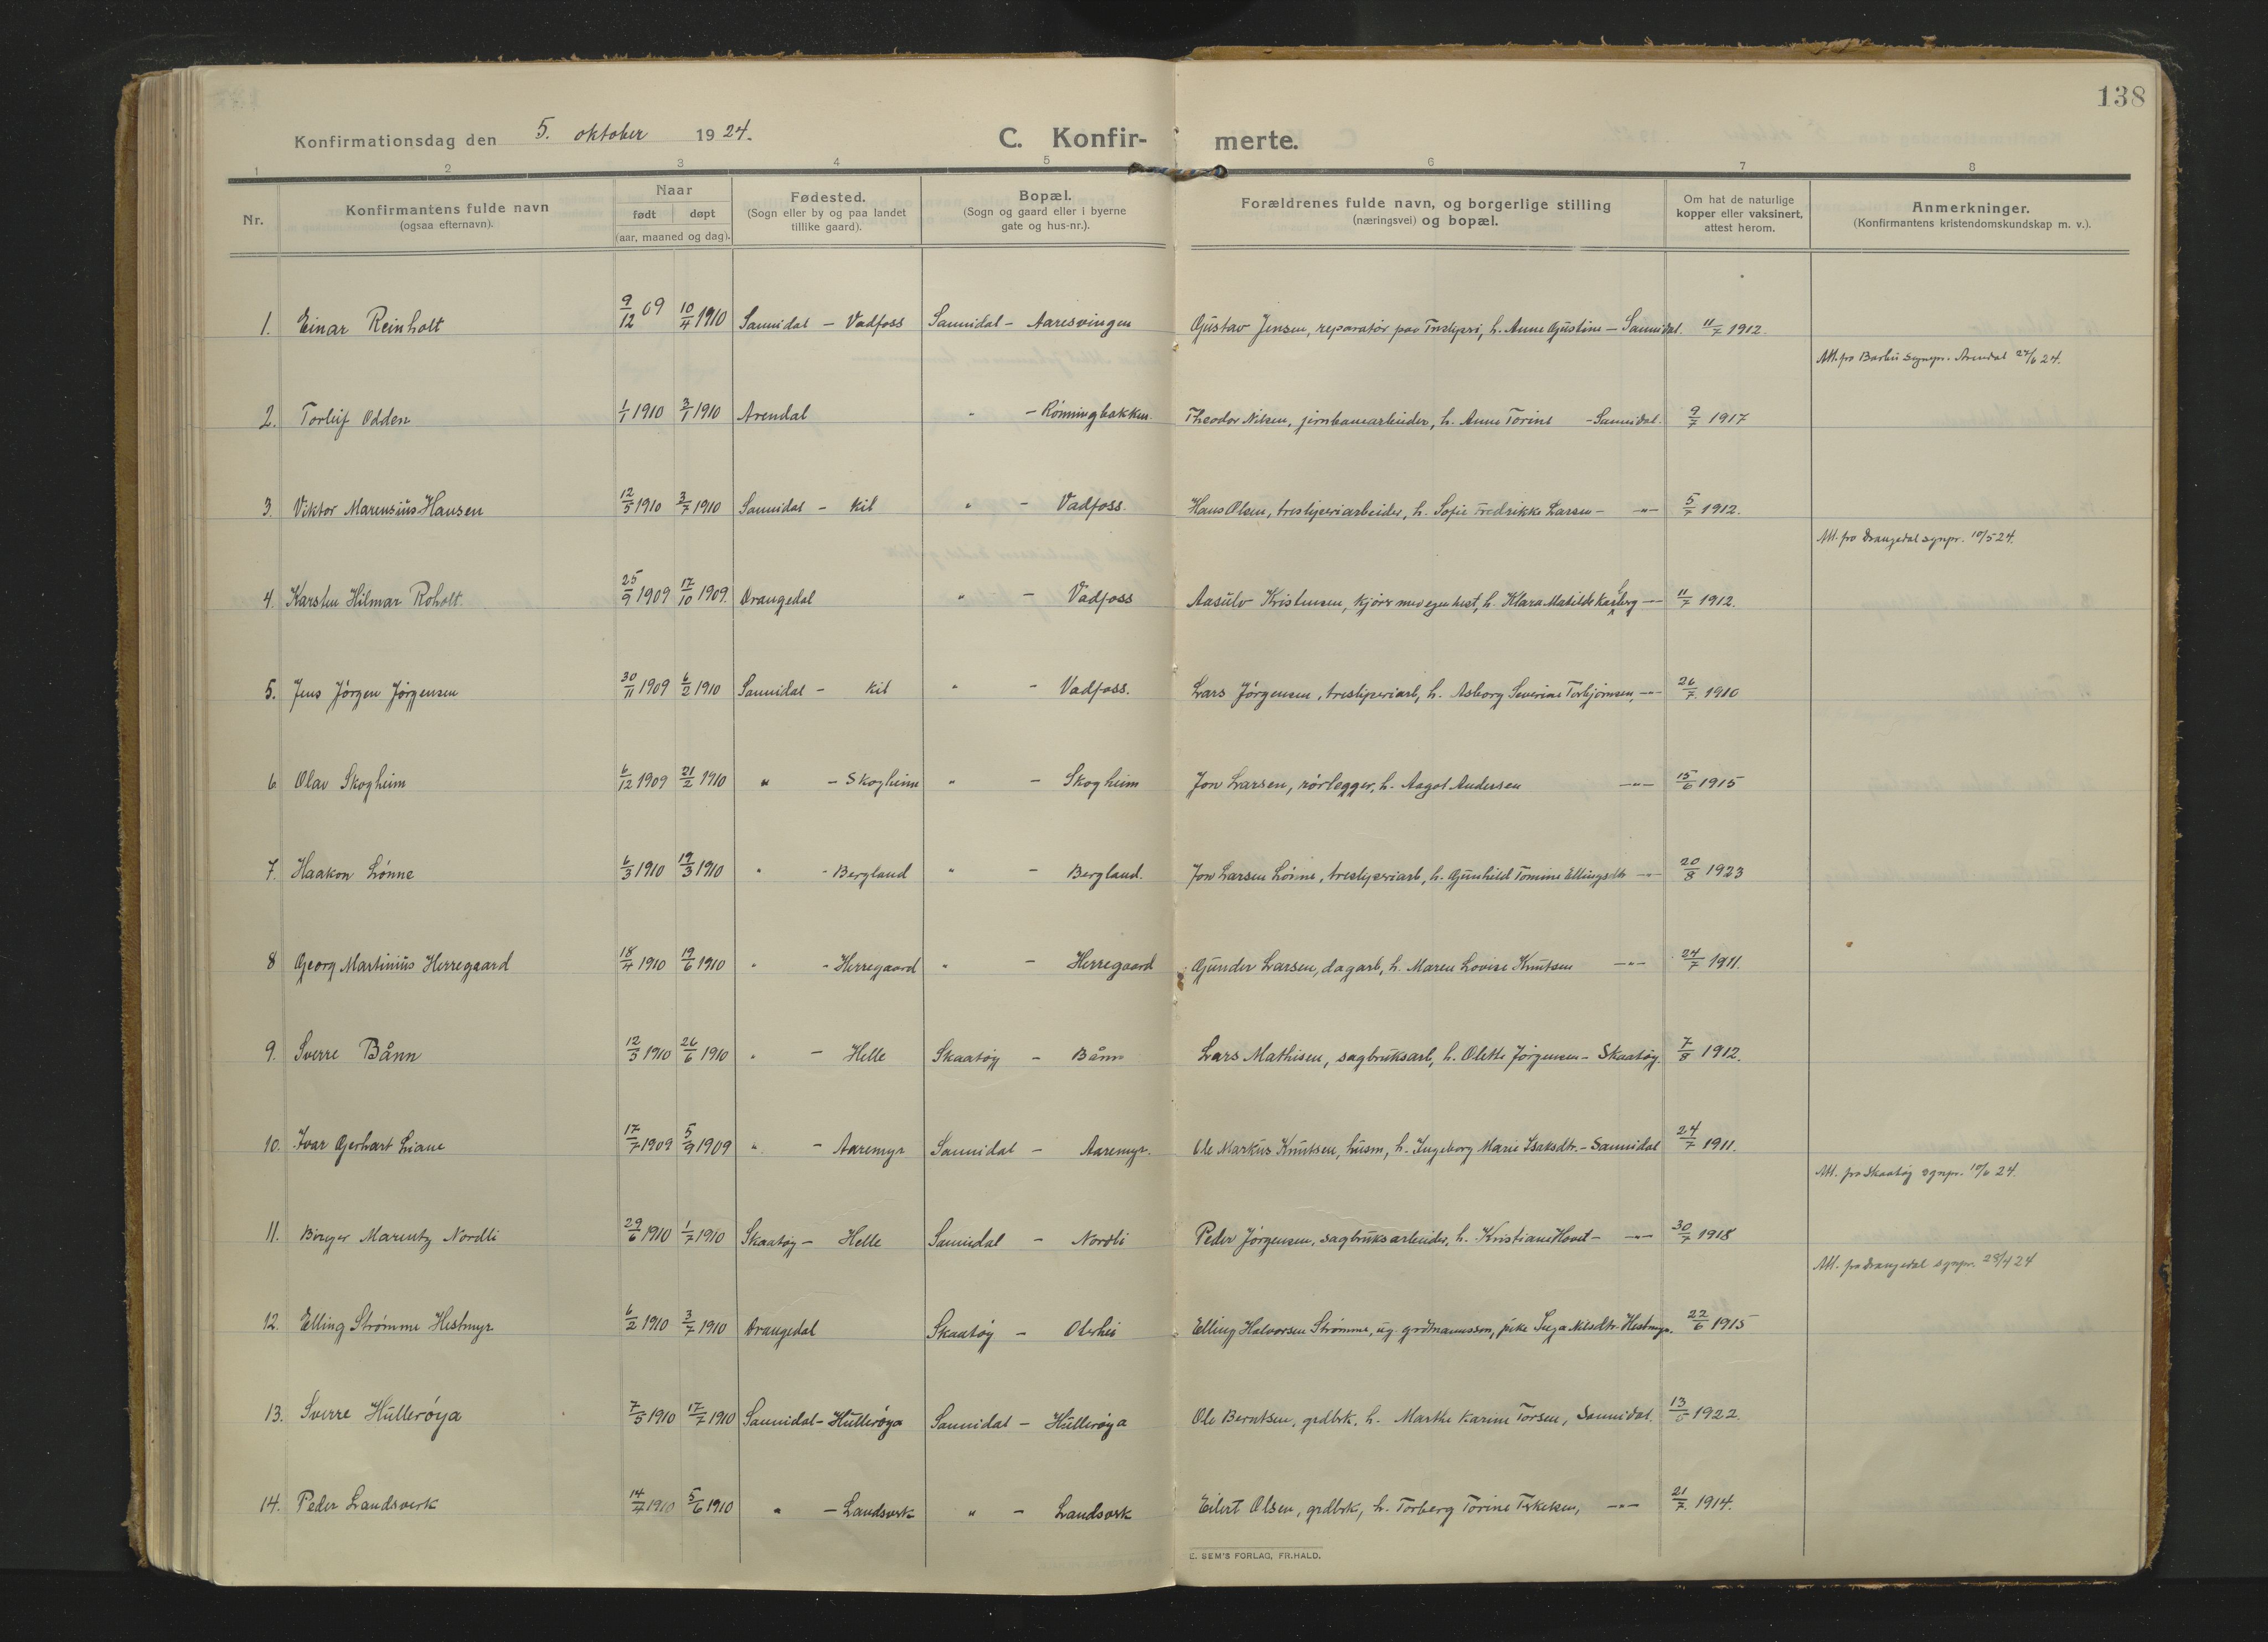 138
Konfirmationsdag den 5. oktober 1924.
C. Konfir- merte.
1 2 3 4 5 6 7 8
Nr.
Konfirmantens fulde navn
(ogsaa efternavn).
Naar
født døpt
(aar, maaned og dag).
Fødested.
(Sogn eller by og paa landet
tillike gaard).
Bopæl.
(Sogn og gaard eller i byerne
gate og hus-nr.).
Forældrenes fulde navn, og borgerlige stilling
(næringsvei) og bopæl.
Om hat de naturlige
kopper eller vaksinert,
attest herom.
Anmerkninger.
(Konfirmantens kristendomskundskap m. v.).
1. Einar Reinholt 9/12 09 10/4 1910 Sannidal - Vadfoss Sannidal - Aaresvingen Gustav Jensen, reparatør paa Tresliperi, h. Anne Gustine - Sannidal. 11/7 1912.
Att. fra Barbu sognepr. Arendal 24/6 24.
2. Torleif Odden 1/1 1910 3/1 1910 Arendal " - Rönningbakken. Theodor Nilsen, jernbanearbeider, h. Anne Torine - Sannidal. 9/7 1917
3. Viktor Marensius Hansen 12/5 1910 3/7 1910 Sannidal - Kil " - Vadfoss. Hans Olsen, tresliperiarbeider, h. Sofie Fredrikke Larsen - -"- 5/7 1912.
Att. fra Drangedal sognpr. 10/5 24.
4. Karsten Hilmar Roholt. 25/9 1909 17/10 1909. Drangedal " - Vadfoss Aasulv Kristensen, kjörer med egen hest, h. Klara Matilde -"- 11/7 1912.
5. Jens Jörgen Jörgensen 30/11 1909 6/2 1910 Sannidal - Kil " - Vadfoss. Lars Jörgensen, tresliperiarb, h. Asborg Severine Torbjörnsen, -"- 26/7 1910
6 Olav Skogheim 6/12 1909 21/2 1910 " - Skogheim " - Skogheim Jon Larsen, rörlegger, h. Aagot Andersen -"- 15/6 1915
7. Haakon Lönne 6/3 1910 19/3 1910 " - Bergland " - Bergland. Jon Larsen Lönne, tresliperiarb, h. Gunhild Tomine Ellingsdtr -"- 20/8 1923
8 Georg Martinius Herregaard 18/4 1910 19/6 1910 " - Herregaard " - Herregaard Gunder Larsen, dagarb, h. Maren Lovise Knutsen -"- 24/7 1911.
9. Sverre Bånn 12/3 1910 26/6 1910 " - Helle Skaatöy - Bånn Lars Mathisen, sagbruksarb, h. Olette Jörgensen - Skaatöy. 7/8 1912.
10. Ivar Gerhart Liane 17/7 1909 5/9 1909 " - Aaremyr Sannidal - Aaremyr. Ole Markus Knutsen, husm, h. Ingeborg Marie Isaksdtr. - Sannidal 24/7 1911.
Att. fra Skaatöy sgnpr. 10/6 24.
11. Birger Marentz Nordli 29/6 1910 1/7 1910 Skaatöy - Helle Sannidal - Nordli Peder Jörgensen, sagbruksarbeider, h. Kristiane Hovet - -"- 30/7 1918
Att. fra Drangedal sgnpr. 29/4 24
12. Elling Strömme Hestmyr 6/2 1910 3/7 1910 Drangedal Skaatöy - Oterhei Elling Halvorsen Strömme, ug. grdmannssön, pike Inga Nilsdtr Hestmyr. 22/6 1915
13. Sverre Hulleröya 7/5 1910 17/7 1910 Sannidal - Hulleröya Sannidal - Hulleröya Ole Berntsen, grdbrk, h. Marthe Karine Torsen, Sannidal. 13/6 1922.
14. Peder Landsverk 14/4 1910 5/6 1910 " - Landsverk " - Landsverk Eilert Olsen, grdbrk, h. Torberg Torine Terkelsen, -"- 21/7 1914.
E. SEM'S FORLAG, FR.HALD.